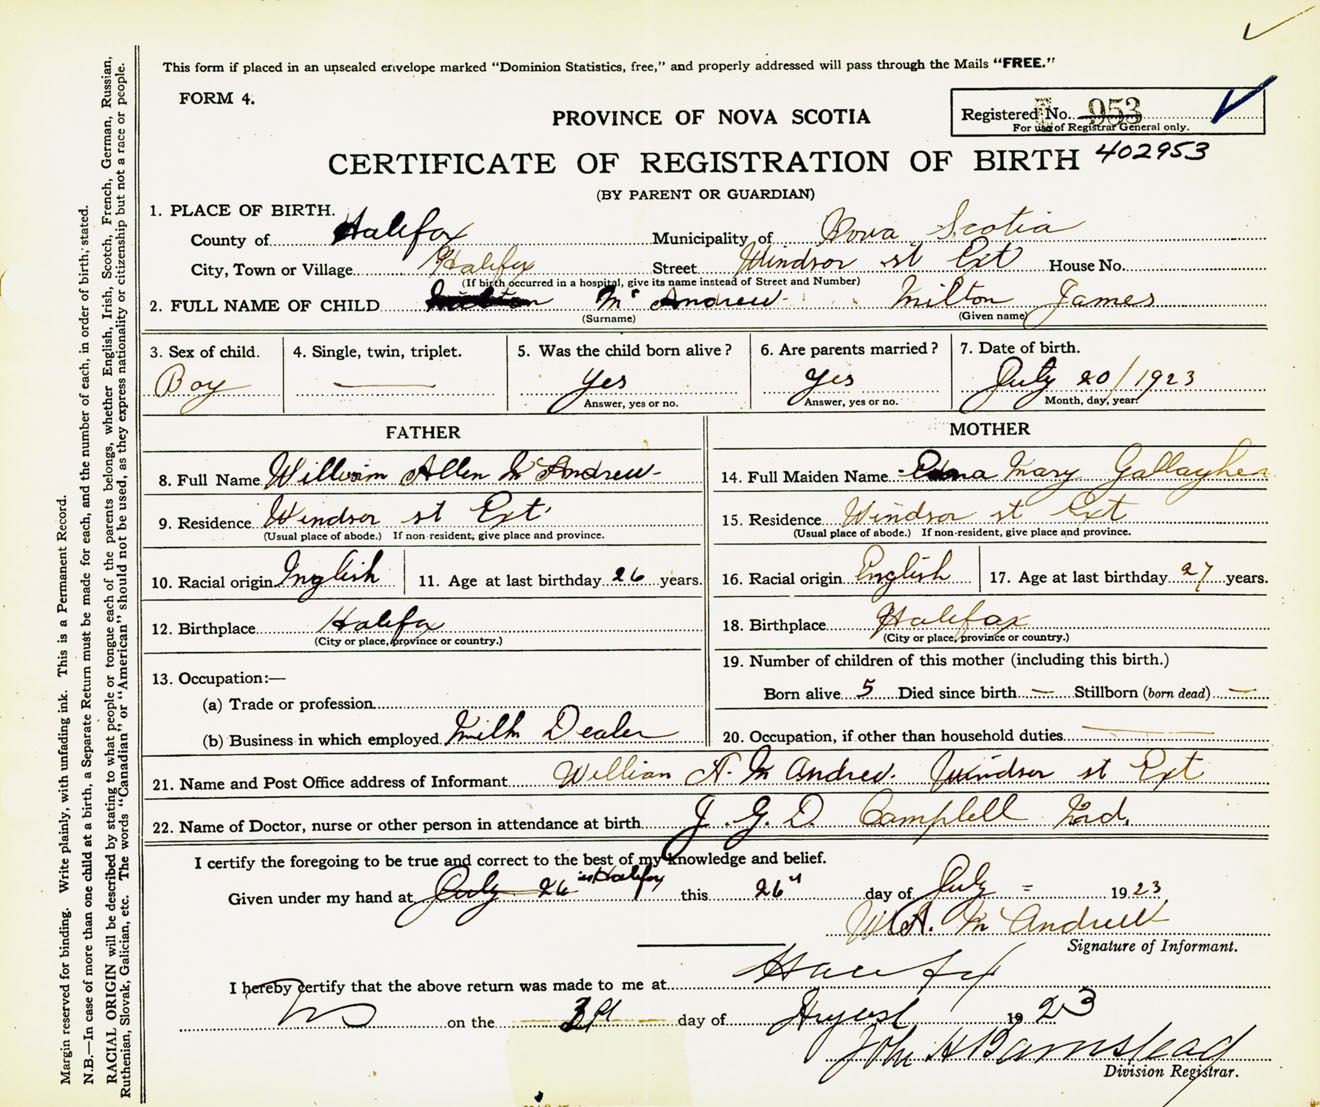 This form if placed in an unsealed envelope marked "Dominion Statistics, free," and properly addressed will pass through the Mails "FREE."
FORM 4.
PROVINCE OF NOVA SCOTIA
Registered No. 953
For use of Registrar General only.
CERTIFICATE OF REGISTRATION OF BIRTH 402953
(BY PARENT OR GUARDIAN)
1. PLACE OF BIRTH.
County of Halifax Municipality of Nova Scotia
City, Town or Village Halifax Street Windsor st Ext House No.
(If birth occurred in a hospital, give its name instead of Street and Number)
2. FULL NAME OF CHILD Mc Andrew Milton James
(Surname) (Given name)
3. Sex of child. 4. Single, twin, triplet. 5. Was the child born alive? 6. Are parents married? 7. Date of birth.
Boy — yes yes July 20/1923
Answer, yes or no. Answer, yes or no. Month, day, year.
FATHER
8. Full Name William Allen Mc Andrew
9. Residence Windsor st Ext.
(Usual place of abode.) If non-resident, give place and province.
10. Racial origin Inglish 11. Age at last birthday 26 years.
12. Birthplace Halifax
(City or place, province or country.)
13. Occupation:—
(a) Trade or profession
(b) Business in which employed Milk Dealer
MOTHER
14. Full Maiden Name Edna Mary Gallagher
15. Residence Windsor st Ext
(Usual place of abode.) If non-resident, give place and province.
16. Racial origin English 17. Age at last birthday 27 years.
18. Birthplace Halifax
(City or place, province or country.)
19. Number of children of this mother (including this birth.)
Born alive 5 Died since birth — Stillborn (born dead) —
20. Occupation, if other than household duties —
21. Name and Post Office address of Informant William A. Mc Andrew. Windsor st Ext
22. Name of Doctor, nurse or other person in attendance at birth J. G. D. Campbell Md.
I certify the foregoing to be true and correct to the best of my knowledge and belief.
Given under my hand at July 26 in Halifax this 26" day of July 1923
W. A. Mc Andrew
Signature of Informant.
I hereby certify that the above return was made to me at Halifax
NS on the day of August 1923
John H Barnstead
Division Registrar.
Margin reserved for binding. Write plainly, with unfading ink. This is a Permanent Record.
N.B.—In case of more than one child at a birth, a Separate Return must be made for each, and the number of each, in order of birth, stated.
RACIAL ORIGIN will be described by stating to what people or tongue each of the parents belongs, whether English, Irish, Scotch, French, German, Russian,
Ruthenian, Slovak, Galician, etc. The words "Canadian" or "American" should not be used, as they express nationality or citizenship but not a race or people.